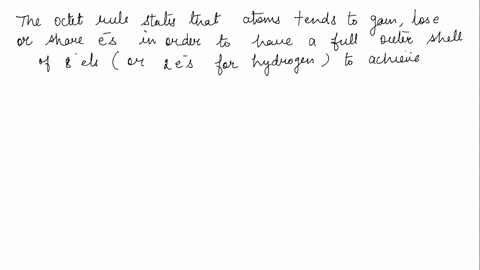 The octet rule states that atoms tends to gain, lose
or share e⁻s in order to have a full outer shell
of 8 els (or 2e⁻s for hydrogen) to achieve